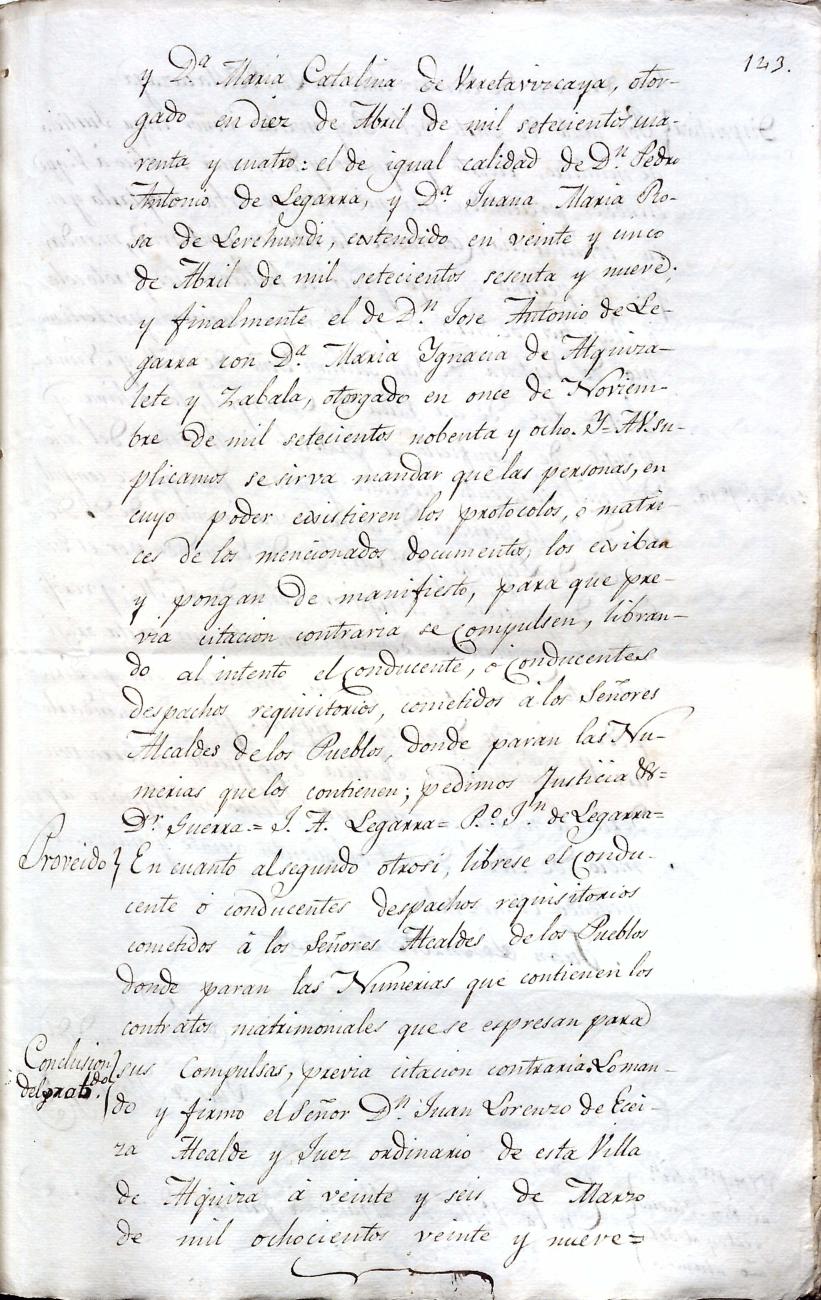 123.
y D.ª Maria Catalina de Vrretavizcaya, otor-
gado en diez de Abril de mil setecientos cua-
renta y cuatro: el de igual calidad de D.n Pedro
Antonio de Legarra, y D.ª Juana Maria Ro-
sa de Lerchundi, extendido en veinte y cinco
de Abril de mil setecientos sesenta y nueve;
y finalmente el de D.n Jose Antonio de Le-
garra con D.ª Maria Ygnacia de Alquiza-
lete y Zabala, otorgado en once de Noviem-
bre de mil setecientos nobenta y ocho. Y= A V. su-
plicamos se sirva mandar que las personas, en
cuyo poder existieren los protocolos, o matri-
ces de los mencionados documentos, los exiban
y pongan de manifiesto, para que pre-
via citacion contraria se Compulsen, libran-
do al intento el Conducente, o Conducentes
despachos requisitorios, cometidos à los Señores
Alcaldes de los Pueblos, donde paran las Nu-
merias que los contienen; pedimos Justicia &=
D.r Guerra.= J. A. Legarra= P.o J.n de Legarra=
Proveido } En cuanto al segundo otrosi, librese el Condu-
cente ò conducentes despachos requisitorios
cometidos à los Señores Alcaldes de los Pueblos
donde paran las Numerias que contienen los
contratos matrimoniales que se expresan para
Conclusion
del prob.do } sus Compulsas, previa citacion contraria. Lo man-
do y firmo el Señor D.n Juan Lorenzo de Ecei-
za Alcalde y Juez ordinario de esta Villa
de Alquiza à veinte y seis de Marzo
de mil ochocientos veinte y nueve=